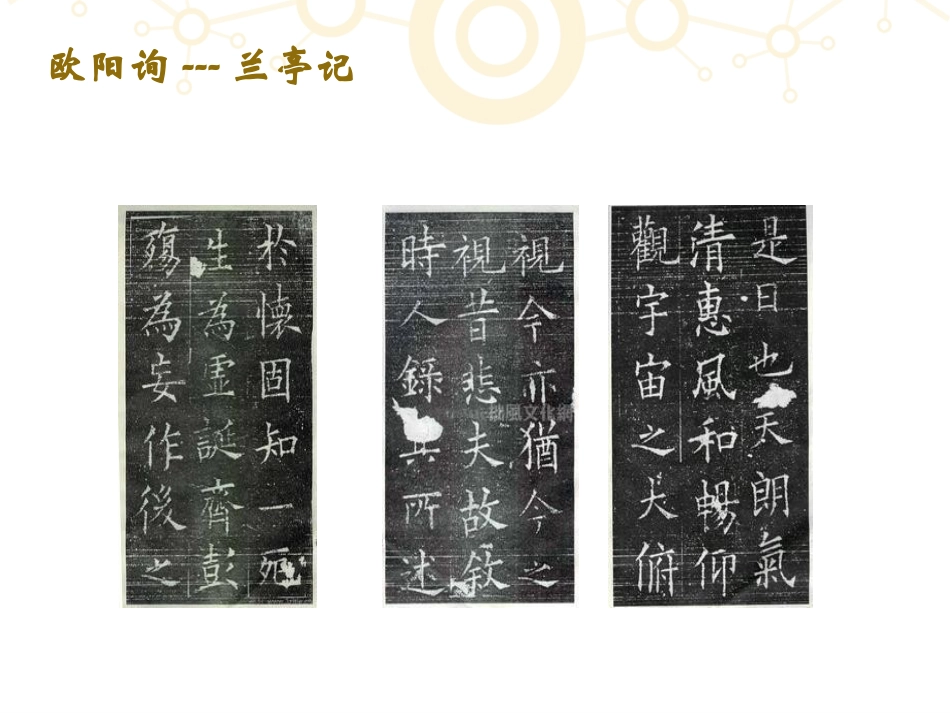 欧阳询 --- 兰亭记
是日也天朗氣
清惠風和暢仰
觀宇宙之大俯
視今亦猶今之
視昔悲夫故敘
時人錄其所述
於懷固知一死
生為虛誕齊彭
殤為妄作後之